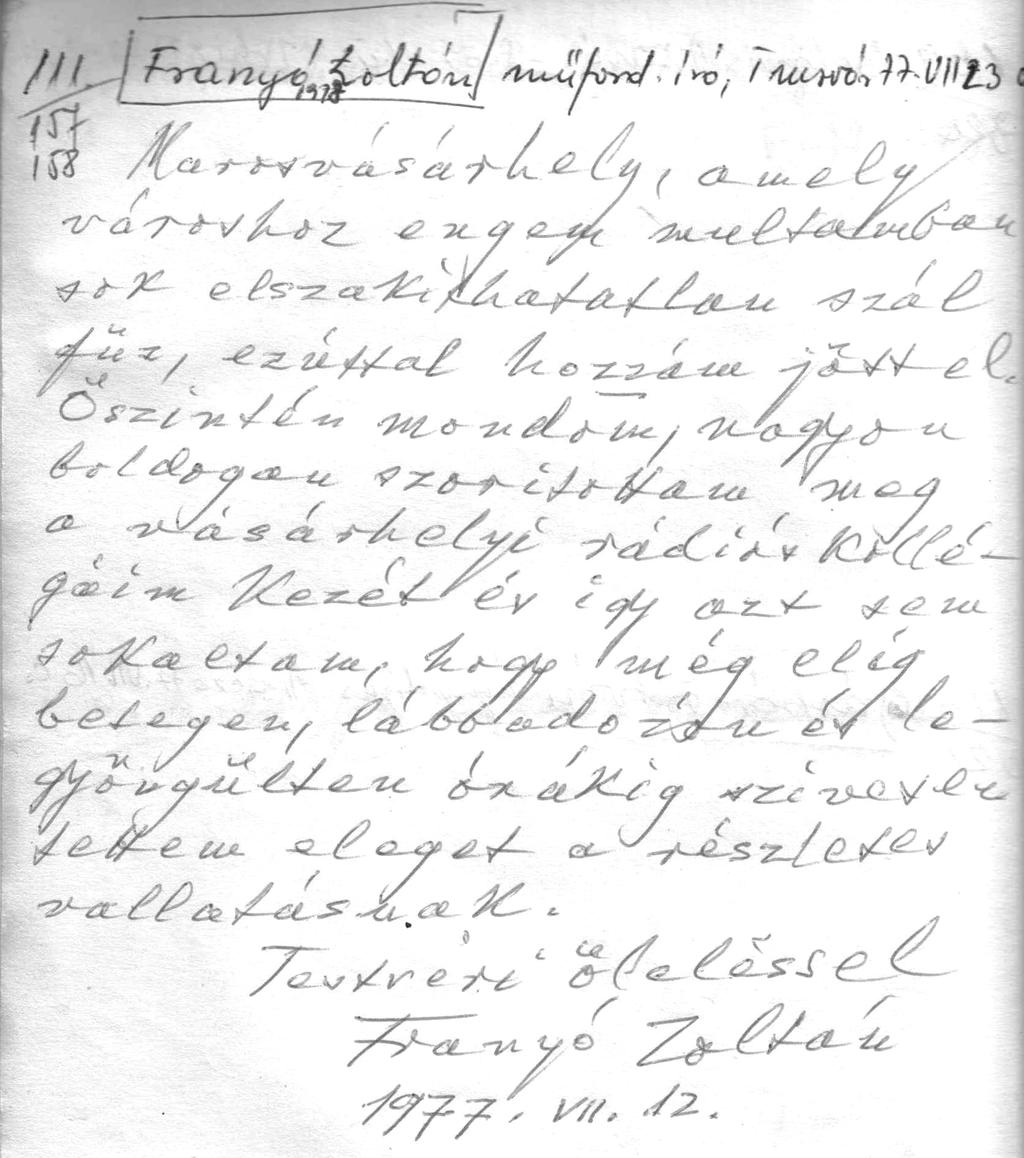 111 Franyó Zoltán műford. író, Tmsvár 77.VII 23
1978
157
158 Marosvásárhely, amely
városhoz engem multamban
sok elszakíthatatlan szál
fűz, ezúttal hozzám jött el.
Őszintén mondom, nagyon
boldogan szorítottam meg
a vásárhelyi rádiós kollé-
gáim kezét és így azt sem
sokaltam, hogy még elég
betegen, lábbadozón és le-
gyöngülten órákig szívesen
tettem eleget a részletes
vallatásnak.
Testvéri öleléssel
Franyó Zoltán
1977. VII. 12.